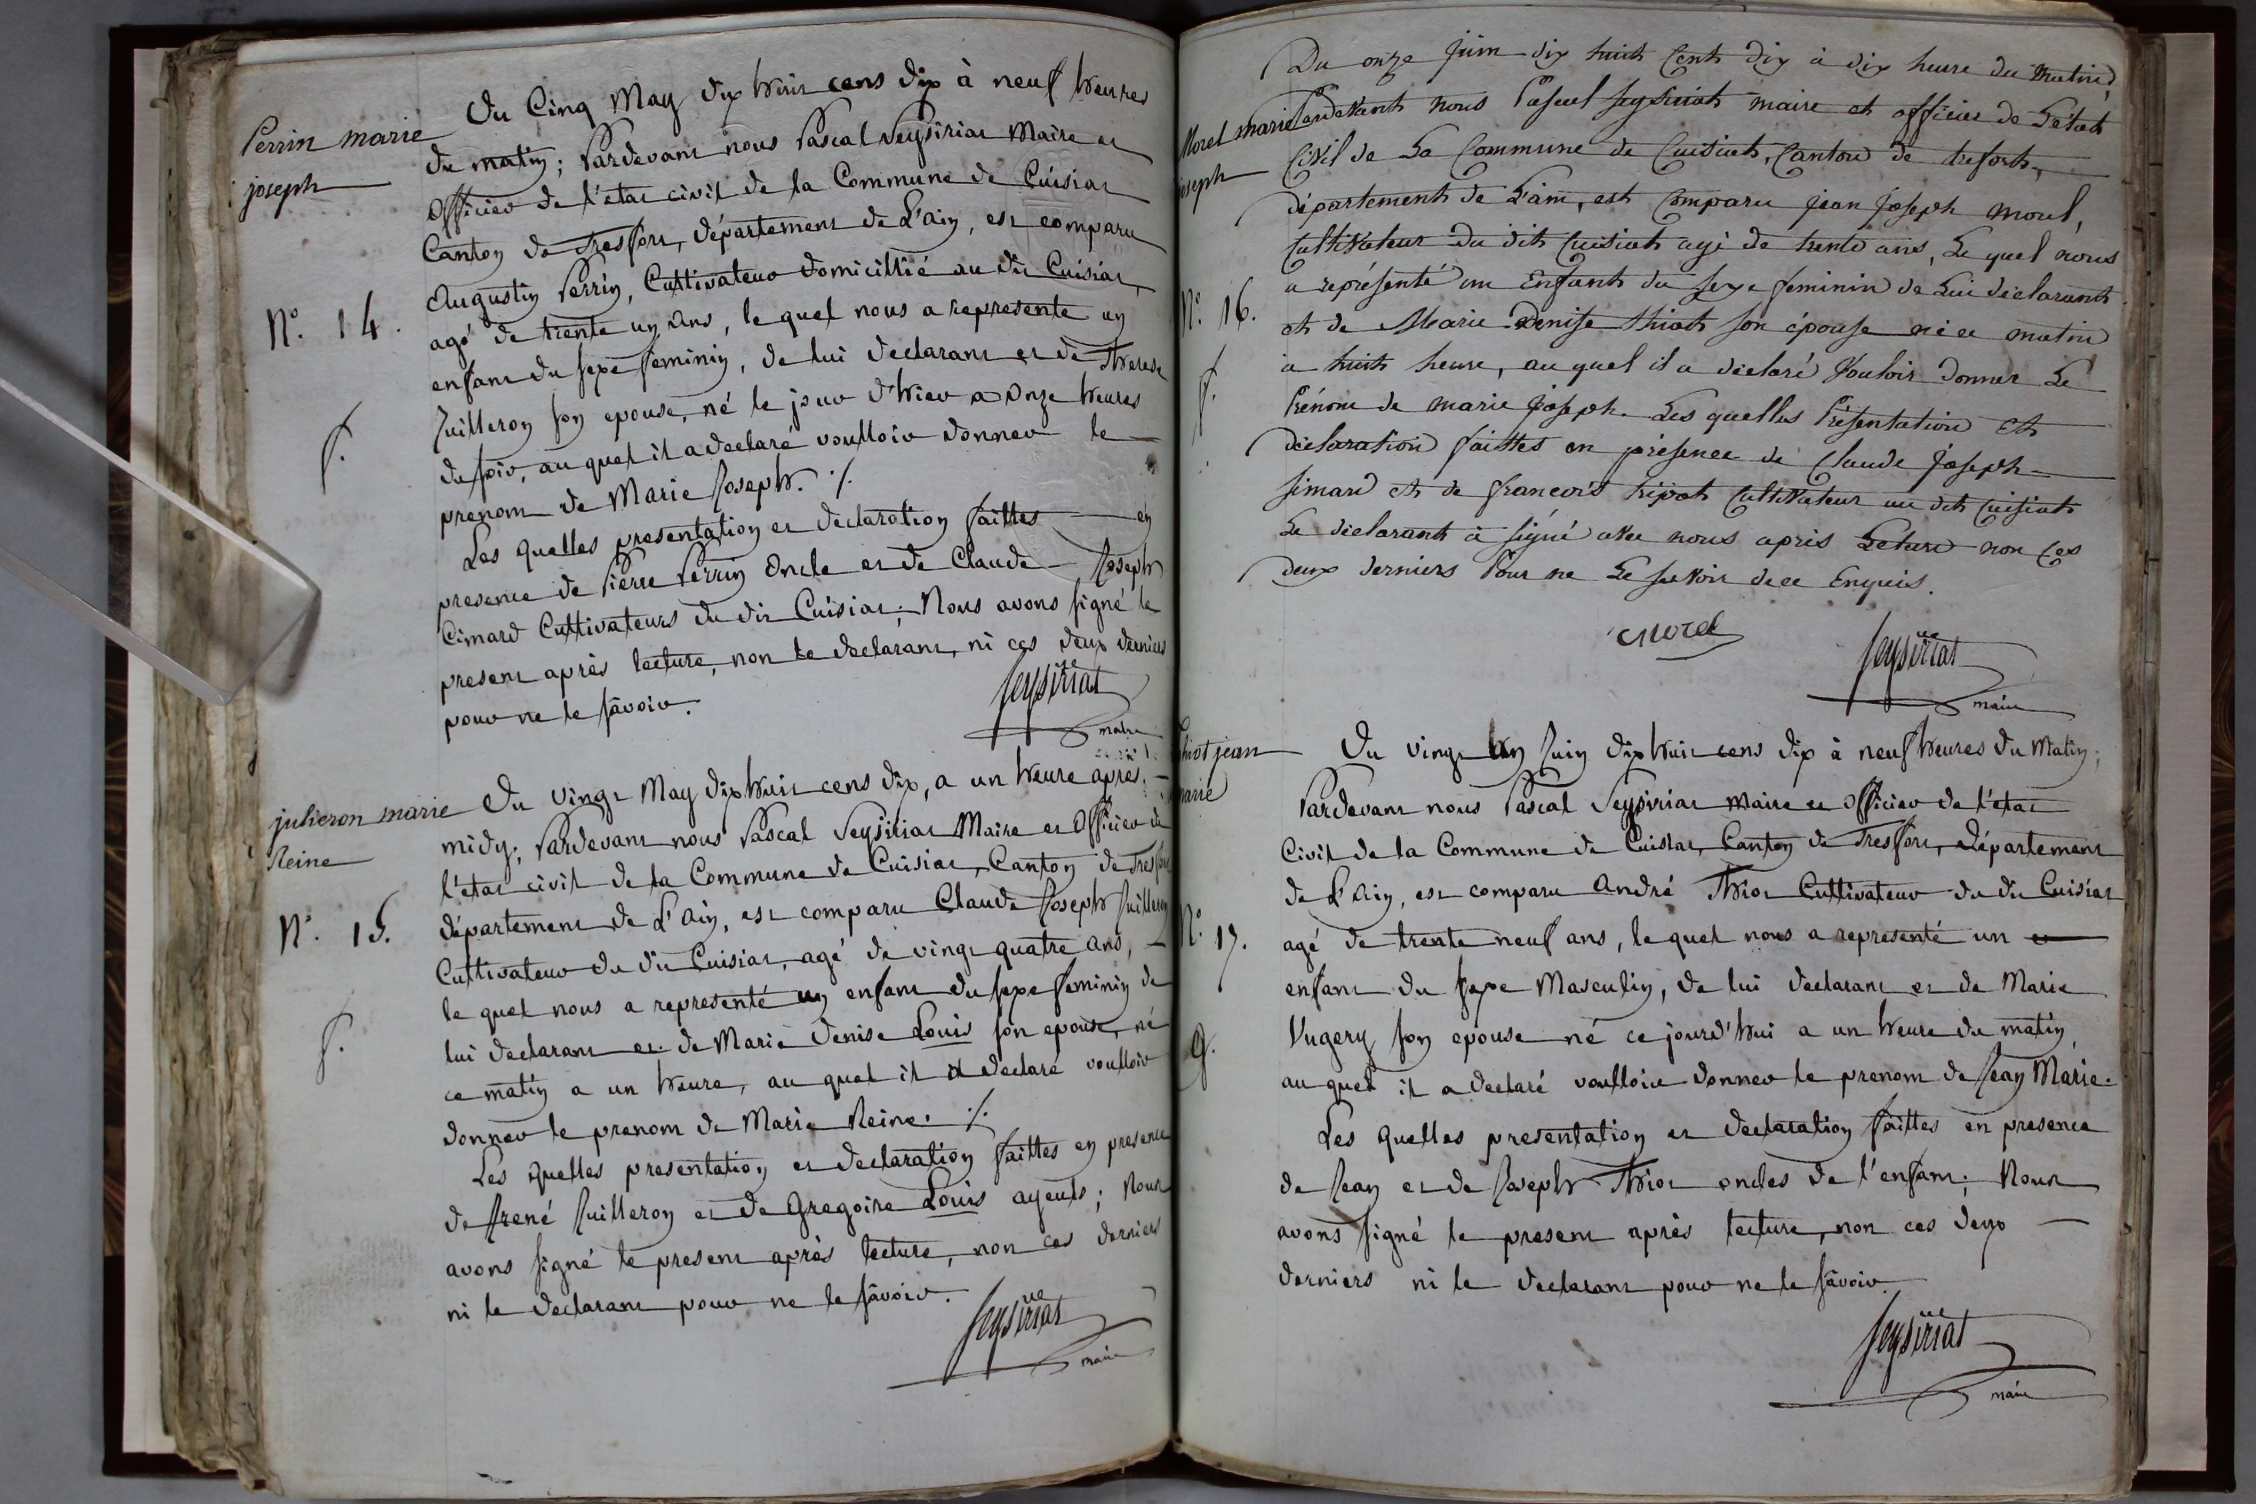 Perrin marie
joseph
N.º 14.
f.
Du Cinq May dix huit cens dix à neuf heures
du matin; Pardevant nous Pascal Seysiriat Maire et
Officier de l'etat civil de la Commune de Cuisiat
Canton de Tresfort, département de L'ain, est comparu
Augustin Perrin, Cultivateur domicillié au dit Cuisiat,
agé de trente un ans, le quel nous a representé un
enfant du sexe feminin, de lui declarant et de Therese
Juilleron son epouse, né le jour d'hier a onze heures
du soir, au quel il a declaré voulloir donner le
prenom de Marie Joseph. ·/.
Les quelles presentation et declaration faittes en
presence de Pierre Perrin Oncle et de Claude Joseph
Cimard Cultivateurs du dit Cuisiat; Nous avons signé le
present après lecture, non le declarant, ni ces deux derniers
pour ne le sâvoir.
Seysiriat
maire
julieron marie
Reine
N.º 15.
f.
Du vingt May dix huit cens dix, a un heure après
midy; Pardevant nous Pascal Seysiriat Maire et Officier de
l'etat civil de la Commune de Cuisiat, Canton de Tresfort
département de L'ain, est comparu Claude Joseph Juilleron
Cultivateur du dit Cuisiat, agé de vingt quatre ans,
le quel nous a representé un enfant du sexe feminin de
lui declarant et de Marie Denise Louis son epouse, né
ce matin a un heure, au quel il a declaré voulloir
donner le prenom de Marie Reine. ·/.
Les quelles presentation et declaration faittes en presence
de René Juilleron et de Gregoire Louis ayeuls; Nous
avons signé le present après lecture, non ces derniers
ni le declarant pour ne le sâvoir.
Seysiriat
maire
Morel marie
joseph
N.º 16.
f.
Du onze juin dix huit Cent dix à dix heure du matin,
Pardevant nous Pascal Seysiriat maire et officier de L'état
Civil de La Commune de Cuisiat, Canton de trefort,
département de L'ain, est Comparu jean joseph morel,
Cultivateur du dit Cuisiat agé de trente ans, Le quel nous
a représenté un Enfant du sexe feminin de Lui déclarant
et de Marie Denise thiot son épouse né ce matin
a huit heure, au quel il a déclaré Vouloir donner Le
Prénom de marie joseph. Les quelles Présentation et
déclaration faittes en présence de Claude joseph
simard et de francois tripot Cultivateur au dit Cuisiat
Le déclarant à signé avec nous après Lecture non Ces
deux derniers Pour ne Le savoir de ce Enquis.
Morel
Seysiriat
maire
thiot jean
marie
N.º 17.
g.
Du vingt un Juin dix huit cens dix à neuf heures du Matin;
Pardevant nous Pascal Seysiriat maire et officier de l'etat
Civil de la Commune de Cuisiat, Canton de Tresfort, Département
de L'Ain, est comparu André Thiot Cultivateur du dit Cuisiat
agé de trente neuf ans, le quel nous a representé un
enfant du sexe Masculin, de lui declarant et de Marie
Vugery son epouse né ce jourd'hui a un heure du matin
au quel il a declaré voulloir donner le prenom de Jean Marie.
Les quelles presentation et declaration faittes en presence
de Jean et de Joseph Thiot oncles de l'enfant; Nous
avons signé le present après lecture, non ces deux
derniers ni le declarant pour ne le sâvoir.
Seysiriat
maire